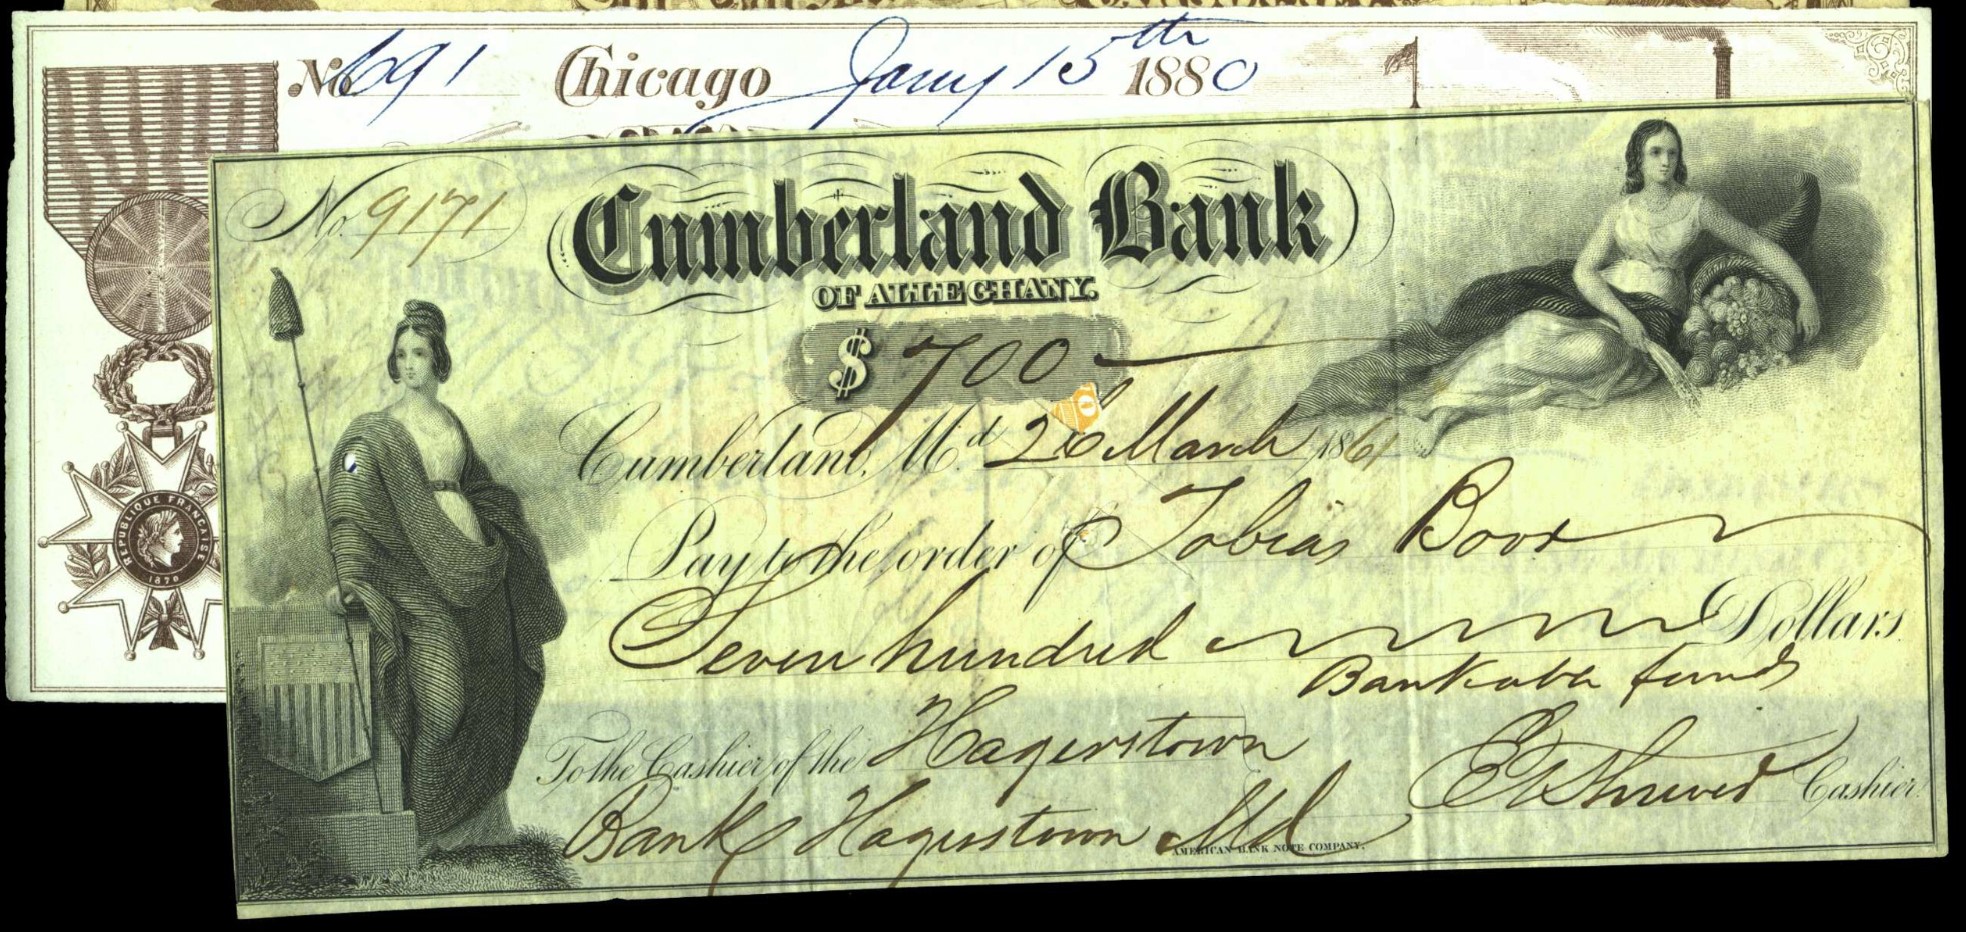 No 691 Chicago Jany 15th 1880
No. 9171
Cumberland Bank
OF ALLEGHANY.
$ 700
Cumberland, Md. 26 March 1861
Pay to the order of Tobias Boox
Seven hundred Dollars
Bankable funds
To the Cashier of the Hagerstown
Bank Hagerstown Md
Cashier.
AMERICAN BANK NOTE COMPANY.
REPUBLIQUE FRANCAISE
1870